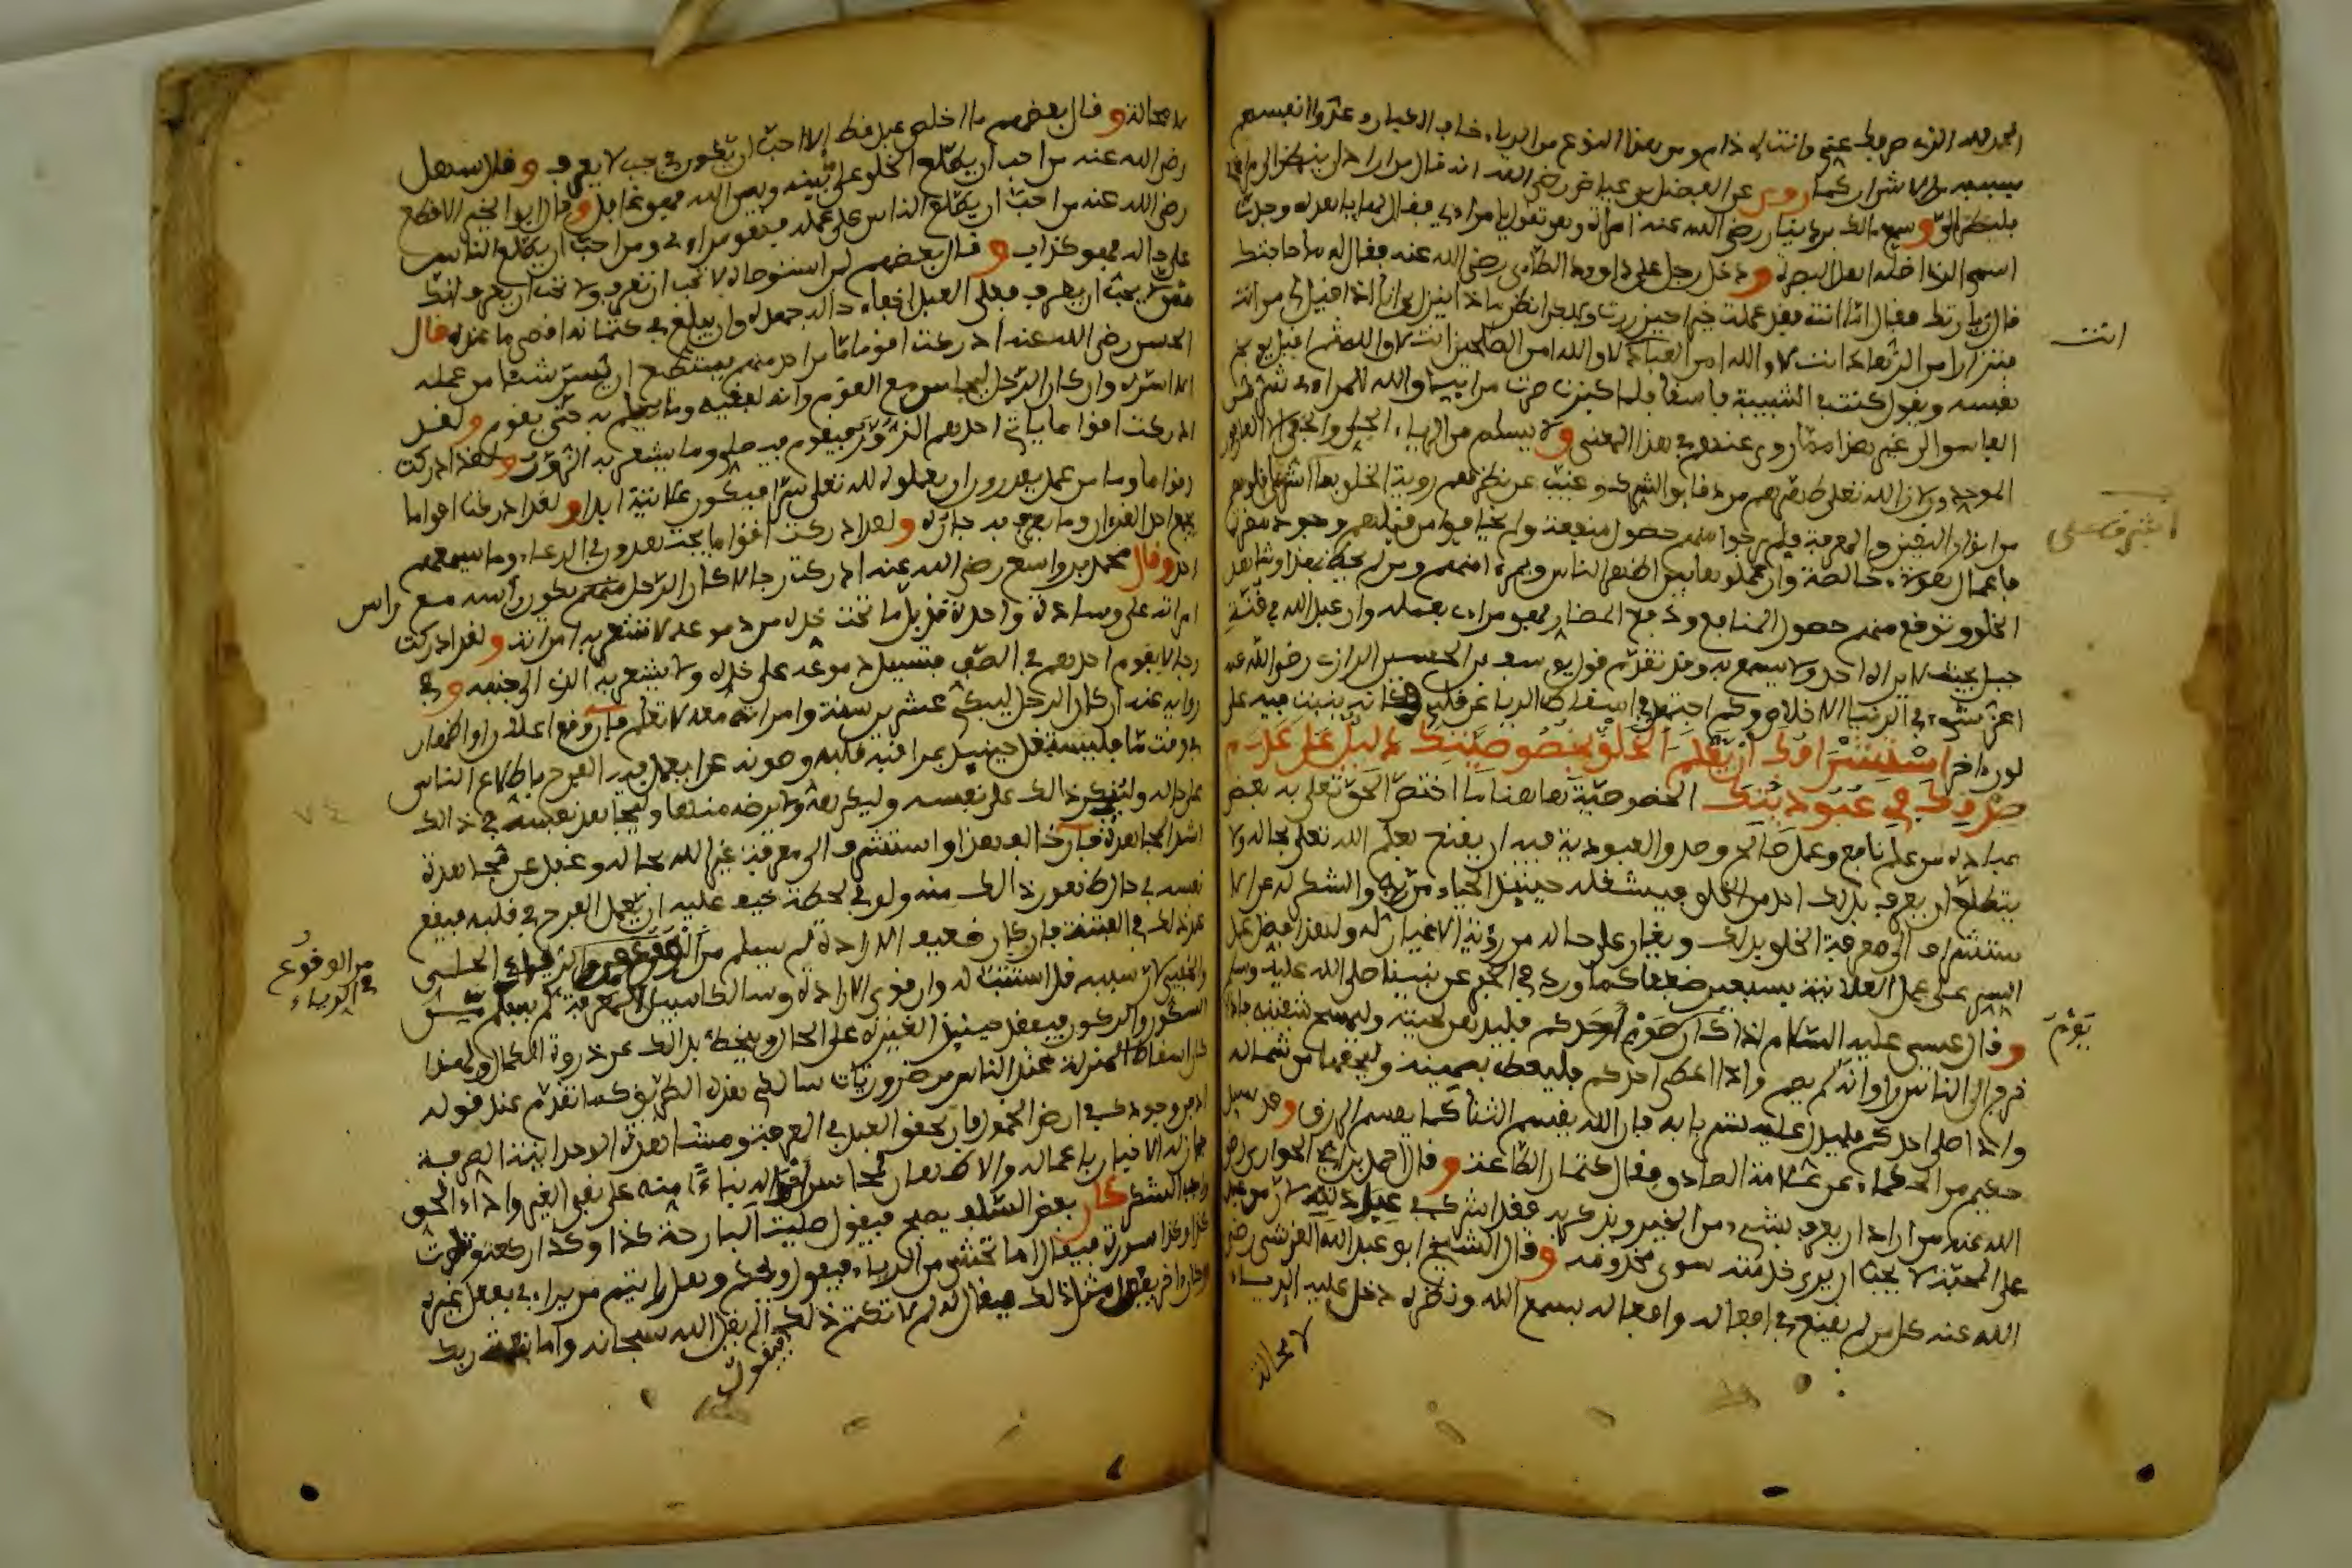 الحمد لله الذي صرفك عني وانت لي ذام ومن هذا النوع من الرياء خاب العباد وعدوا انفسهم
بسببه من الاشرار كما روي عن الفضيل بن عياض رضي الله عنه انه قال من اراد ان ينظر الى مراء
فلينظر الي وسمع مالك بن دينار رضي الله عنه امراة وهي تقول يا مراءي فقال لها يا هذه وجدت
اسمي الذي اضله اهل البصرة ودخل رجل على داوود الطاءي رضي الله عنه فقال له ما حاجتك
قال زيارتك فقال اما انت فقد عملت خيرا حين زرت ولكن انظر ماذا ينزل بي انا اذا قيل لي من انت
فتزار امن الزهاد انت لا والله امن العباد انت لا والله امن الصالحين انت لا والله ثم اقبل يوبخ
نفسه ويقول كنت في الشبيبة فاسقا فلما كبرت صرت مراءيا والله للمراءي شر من
الفاسق الى غير هذا مما روي عنهم في هذا المعنى ولا يسلم من الرياء الجلي والخفي الا العارفون
الموحدون لان الله تعالى طهرهم من دقايق الشرك وغيب عن نظرهم روية الخلق بما اشرق على قلوبهم
من انوار اليقين والمعرفة فلم يرجوا منهم حصول منفعة ولم يخافوا من قبلهم وجود مضرة
فاعمال هؤلاء خالصة وان عملوها بين اظهر الناس وبمرءا منهم ومن لم يحظ بهذا وشاهد
الخلق وتوقع منهم حصول المنافع ودفع المضار فهو مراءي بعمله وان عبد الله في قنة
جبل بحيث لا يراه احد ولا يسمع به وقد تقدم قول يوسف بن الحسين الرازي رضي الله عنه
اعز شيء في الدنيا الاخلاص وكم اجتهد في اسقاط الرياء عن قلبي وكانه ينبت فيه على
لون اخر استشرافك ان يعلم الخلق بخصوصيتك دليل على عدم
صدقك في عبوديتك الخصوصية هاهنا ما اختص الحق تعالى به بعض
عباده من علم نافع وعمل صالح وصدق العبودية فيه ان يقنع بعلم الله تعالى بحاله ولا
يتطلع ان يعرف بذلك احد من الخلق فيشغله حينئذ الحياء من ربه والشكر له عن ان
يستشرف الى معرفة الخلق بذلك ويغار على حاله من رؤية الاغيار له ولهذا فضل عمل
السر على عمل العلانية بسبعين ضعفا كما ورد في الخبر عن نبينا صلى الله عليه وسلم
وقال عيسى عليه السلام اذا كان صوم احدكم فليدهن لحيته وليمسح شفتيه فاذا
خرج الى الناس راوا انه لم يصم واذا اعطى احدكم فليعط بيمينه وليخفها من شماله
واذا صلى احدكم فليسدل عليه ستر بابه فان الله يقسم الثنا كما يقسم الرزق وقد سيل
حكيم من الحكماء عن علامة الصادق فقال كتمان الطاعة وقال احمد بن ابي الحواري رضي
الله عنه من اراد ان يعرف بشيء من الخير ويذكر به فقد اشرك في عبادته لان من عبد
على المحبة لا يحب ان يرى خدمته سوى مخدومه وقال الشيخ ابو عبد الله القرشي رضي
الله عنه كل من لم يقنع في افعاله واقواله بسمع الله ونظره دخل عليه الرياء
لا محالة
انت
اشرق على
يوم
لا محالة وقال بعضهم ما اخلص عبد قط الا احب ان يكون في جب لا يعرف وقال سهل
رضي الله عنه من احب ان يطلع الخلق على ما بينه وبين الله فهو غافل وقال ابو الخير الاقطع
رضي الله عنه من احب ان يطلع الناس على عمله فهو مراءي ومن احب ان يطلع الناس
على حاله فهو كذاب وقال بعضهم
يحب ان يعرف فعلى العبد اخفاء حاله جهده وان يبلغ في كتمانه اقصى ما عنده قال
الحسن رضي الله عنه ادركت اقواما ما من احد منهم يستطيع ان يسر شيئا من عمله
الا اسره وان كان الرجل ليجلس مع القوم وانه لفقيه وما يعلم به حتى يقوم ولقد
ادركت اقواما ياتي احدهم الزور فيقوم فيصلي وما يشعر به الزور ولقد ادركت
اقواما وما من عمل يقدرون ان يعملوه لله تعالى سرا فيكون علانية ابدا ولقد ادركت اقواما
يجمع احدهم القرءان وما يعرف به جاره ولقد ادركت اقواما يجتهدون في الدعاء وما يسمعهم
احد وقال محمد بن واسع رضي الله عنه ادركت رجالا كان الرجل منهم يكون راسه مع راس
امراته على وسادة واحدة قد بل ما تحت خده من دموعه لا تشعر به امراته ولقد ادركت
رجالا يقوم احدهم في الصف فتسيل دموعه على خده ولا يشعر به الذي الى جنبه وفي
رواية عنه ان كان الرجل ليبكي عشرين سنة وامراته معه لا تعلم فان وقع اعلان او اظهار
في وقت ما فليستعمل حينئذ بمراقبة قلبه وصونه عن ان يعمل فيه الفرح باطلاع الناس
على حاله ولينكر ذالك على نفسه وليكرهه ولا يرضه منها وليجاهد نفسه في ذالك
اشد المجاهدة فان خالف هذا واستشرف الى معرفة غير الله بحاله وغفل عن مجاهدة
نفسه في حال ظهور ذالك منه ولو في لحظة خيف عليه ان يعمل الفرح في قلبه فيقع
من الوقوع
في الرياء
السكون والركون فيفقد حينئذ الغيرة على الحال وينحط بذالك عن ذروة الكمال ولهذا
كان اسقاط المنزلة عند الناس من ضروريات سالكي هذه الطريق كما تقدم عند قوله
ادفن وجودك في ارض الخمول فان تحقق العبد في المعرفة ومشاهدة الاحدية الصرفة
جاز له الاخبار باعماله والاظهار لمحاسن احواله بناء منه على نفي الغير واداء لحق
واجب الشكر كان بعض السلف يصبح فيقول صليت البارحة كذا وكذا ركعة وتلوت
كذا وكذا سورة فيقال اما تخشى من الرياء فيقول ويحكم وهل رايتم من يراءي بفعل غيره
وكان اخر يفعل مثل ذالك فيقال له لم لا تكتم ذلك فيقول الم يقل الله سبحانه واما بنعمة ربك